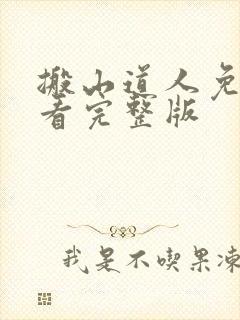 搬山道人免
看完整版
我是不喫果凍